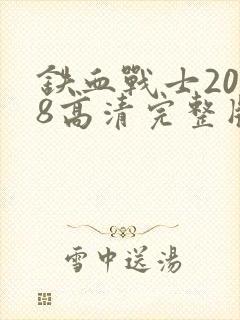 鉄血戰士20
8高清完整
雪中送湯